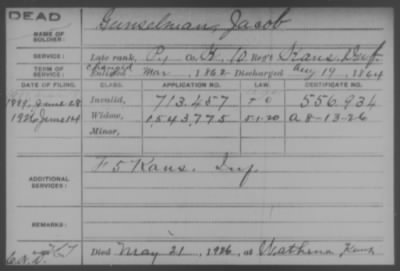 DEAD
NAME OF SOLDIER: Gunselman, Jacob
SERVICE: Late rank, P, Co. K, 10 Reg't Kans. Inf.
TERM OF SERVICE: changed Enlisted Mar , 1862 Discharged Aug 19 , 1864
DATE OF FILING. CLASS. APPLICATION NO. LAW. CERTIFICATE NO.
1889, June 28 Invalid, 713.457 556.934
1926 June 14 Widow, 1,543,775 5-1-20 A 8-13-26
Minor,
ADDITIONAL SERVICES: F 5 Kans. Inf.
REMARKS:
Died May 21 , 1926, at Wathena, Kans